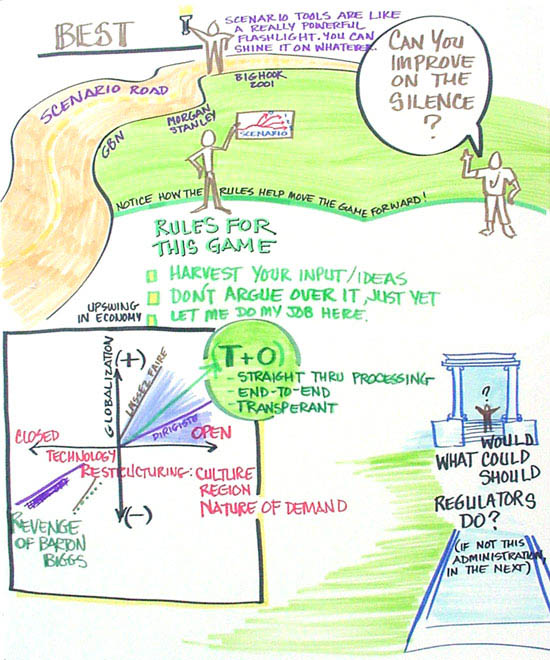 BEST
SCENARIO TOOLS ARE LIKE
A REALLY POWERFUL
FLASHLIGHT. YOU CAN
SHINE IT ON WHATEVER.
CAN YOU
IMPROVE
ON THE
SILENCE
?
BIGHOOK
2001
SCENARIO ROAD
GBN
MORGAN
STANLEY
SCENARIO
NOTICE HOW THE RULES HELP MOVE THE GAME FORWARD!
RULES FOR
THIS GAME
HARVEST YOUR INPUT/IDEAS
DON'T ARGUE OVER IT, JUST YET
LET ME DO MY JOB HERE.
UPSWING
IN ECONOMY
GLOBALIZATION
(+)
LASSEZ FAIRE
DIRIGISTE
T+O)
- STRAIGHT THRU PROCESSING
- END-TO-END
- TRANSPERANT
CLOSED
OPEN
TECHNOLOGY
RESTRUCTURING: CULTURE
REGION
NATURE OF DEMAND
(-)
REVENGE
OF BARTON
BIGGS
?
WOULD
WHAT COULD
SHOULD
REGULATORS
DO?
(IF NOT THIS
ADMINISTRATION,
IN THE NEXT)